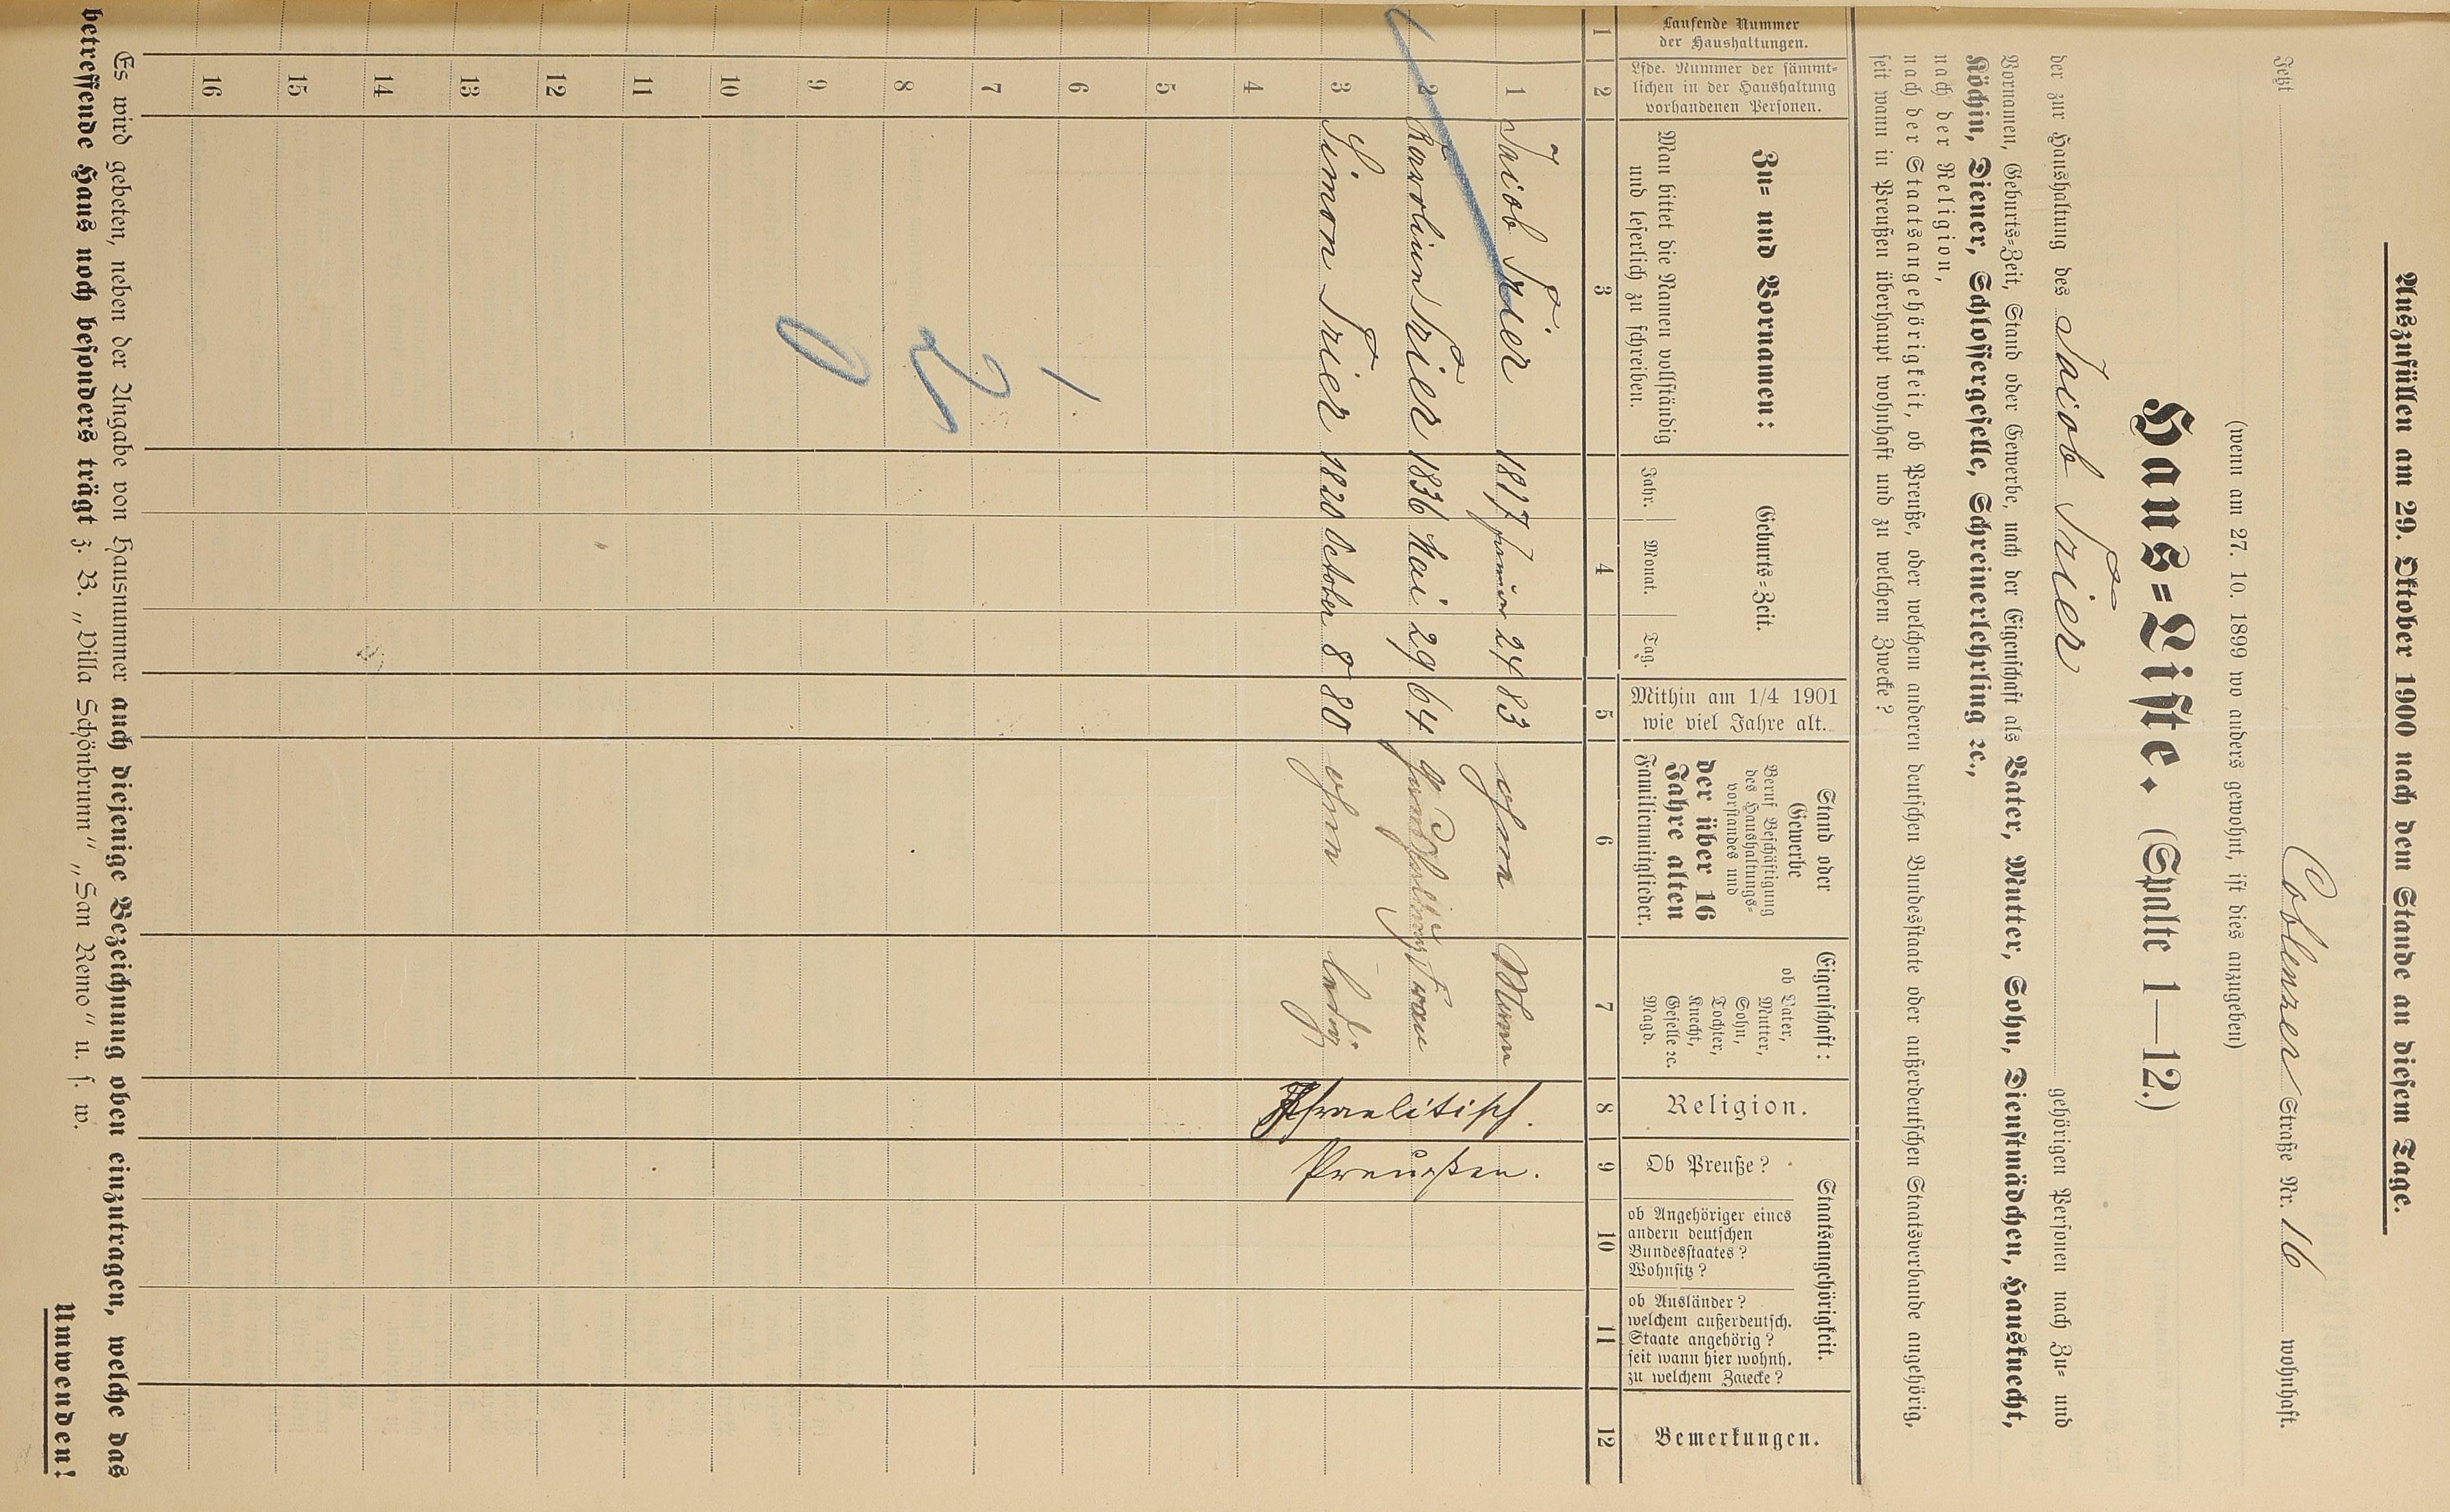 Auszufüllen am 29. Oktober 1900 nach dem Stande an diesem Tage.
Jetzt Coblenzer Straße Nr. 16 wohnhaft.
(wenn am 27. 10. 1899 wo anders gewohnt, ist dies anzugeben)
Haus=Liste. (Spalte 1—12.)
der zur Haushaltung des Jacob Trier gehörigen Personen nach Zu= und
Vornamen, Geburts=Zeit, Stand oder Gewerbe, nach der Eigenschaft als Vater, Mutter, Sohn, Dienstmädchen, Hausknecht,
Köchin, Diener, Schlossergeselle, Schreinerlehrling ꝛc.,
nach der Religion,
nach der Staatsangehörigkeit, ob Preuße, oder welchem anderen deutschen Bundesstaate oder außerdeutschen Staatsverbande angehörig,
seit wann in Preußen überhaupt wohnhaft und zu welchem Zwecke?
Laufende Nummer
der Haushaltungen.
Lfde. Nummer der sämmt=
lichen in der Haushaltung
vorhandenen Personen.
Zu= und Vornamen:
Man bittet die Namen vollständig
und leserlich zu schreiben.
Geburts=Zeit.
Jahr. Monat. Tag.
Mithin am 1/4 1901
wie viel Jahre alt.
Stand oder
Gewerbe
Beruf Beschäftigung
des Haushaltungs=
vorstandes und
der über 16
Jahre alten
Familienmitglieder.
Eigenschaft:
ob Vater,
Mutter,
Sohn,
Tochter,
Knecht,
Geselle ꝛc.
Magd.
Religion.
Staatsangehörigkeit.
Ob Preuße?
ob Angehöriger eines
andern deutschen
Bundesstaates?
Wohnsitz?
ob Ausländer?
welchem außerdeutsch.
Staate angehörig?
seit wann hier wohnh.
zu welchem Zwecke?
Bemerkungen.
1 2 3 4 5 6 7 8 9 10 11 12
1 Jacob Trier 1817 Januar 24 83 ohne Mann Israelitisch. Preußen.
2 Karoline Trier 1836 Mai 29 64 Haushaltung Frau
3 Simon Trier 1820 October 8 80 ohne ledig
4
5
6 1
7
8 2
9 0
10
11
12
13
14
15
16
Es wird gebeten, neben der Angabe von Hausnummer auch diejenige Bezeichnung oben einzutragen, welche das
betreffende Haus noch besonders trägt z. B. „Villa Schönbrunn“ „San Remo“ u. s. w.
Umwenden!